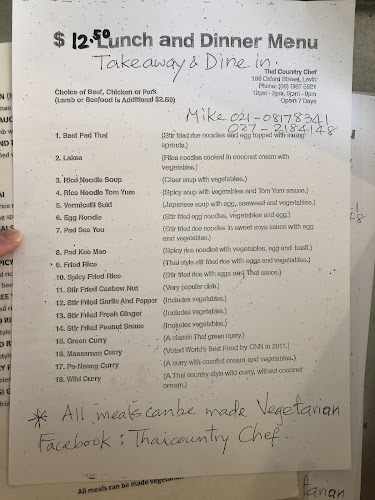 $ 12.50 Lunch and Dinner Menu
Takeaway & Dine in.
Thai Country Chef
198 Oxford Street, Levin
Phone: (06) 367 5921
12pm - 2pm, 5pm - 9pm
Open 7 Days
Choice of Beef, Chicken or Pork
(Lamb or Seafood is Additional $2.50)
Mike 021-08178341
027-2184148
1. Best Pad Thai (Stir fried rice noodles and egg topped with mung
sprouts.)
2. Laksa (Rice noodles cooked in coconut cream with
vegetables.)
3. Rice Noodle Soup (Clear soup with vegetables.)
4. Rice Noodle Tom Yum (Spicy soup with vegetables and Tom Yum sauce.)
5. Vermicelli Suki (Japanese soup with egg, seaweed and vegetables.)
6. Egg Noodle (Stir fried egg noodles, vegetables and egg.)
7. Pad See You (Stir fried rice noodles in sweet soya sauce with egg
and vegetables.)
8. Pad Kee Mao (Spicy rice noodles with vegetables, egg and basil.)
9. Fried Rice (Thai style stir fried rice with eggs and vegetables.)
10. Spicy Fried Rice (Stir fried rice with eggs and Thai sauce.)
11. Stir Fried Cashew Nut (Very popular dish.)
12. Stir Fried Garlic And Pepper (Includes vegetables.)
13. Stir Fried Fresh Ginger (Includes vegetables.)
14. Stir Fried Peanut Sauce (Includes vegetables.)
15. Green Curry (A classic Thai green curry.)
16. Massaman Curry (Voted World's Best Food by CNN in 2011.)
17. Pa-Nang Curry (A curry with coconut cream and vegetables.)
18. Wild Curry (A Thai country style wild curry, without coconut
cream.)
* All meals can be made Vegetarian
Facebook : Thaicountry Chef.
All meals can be made vegetarian